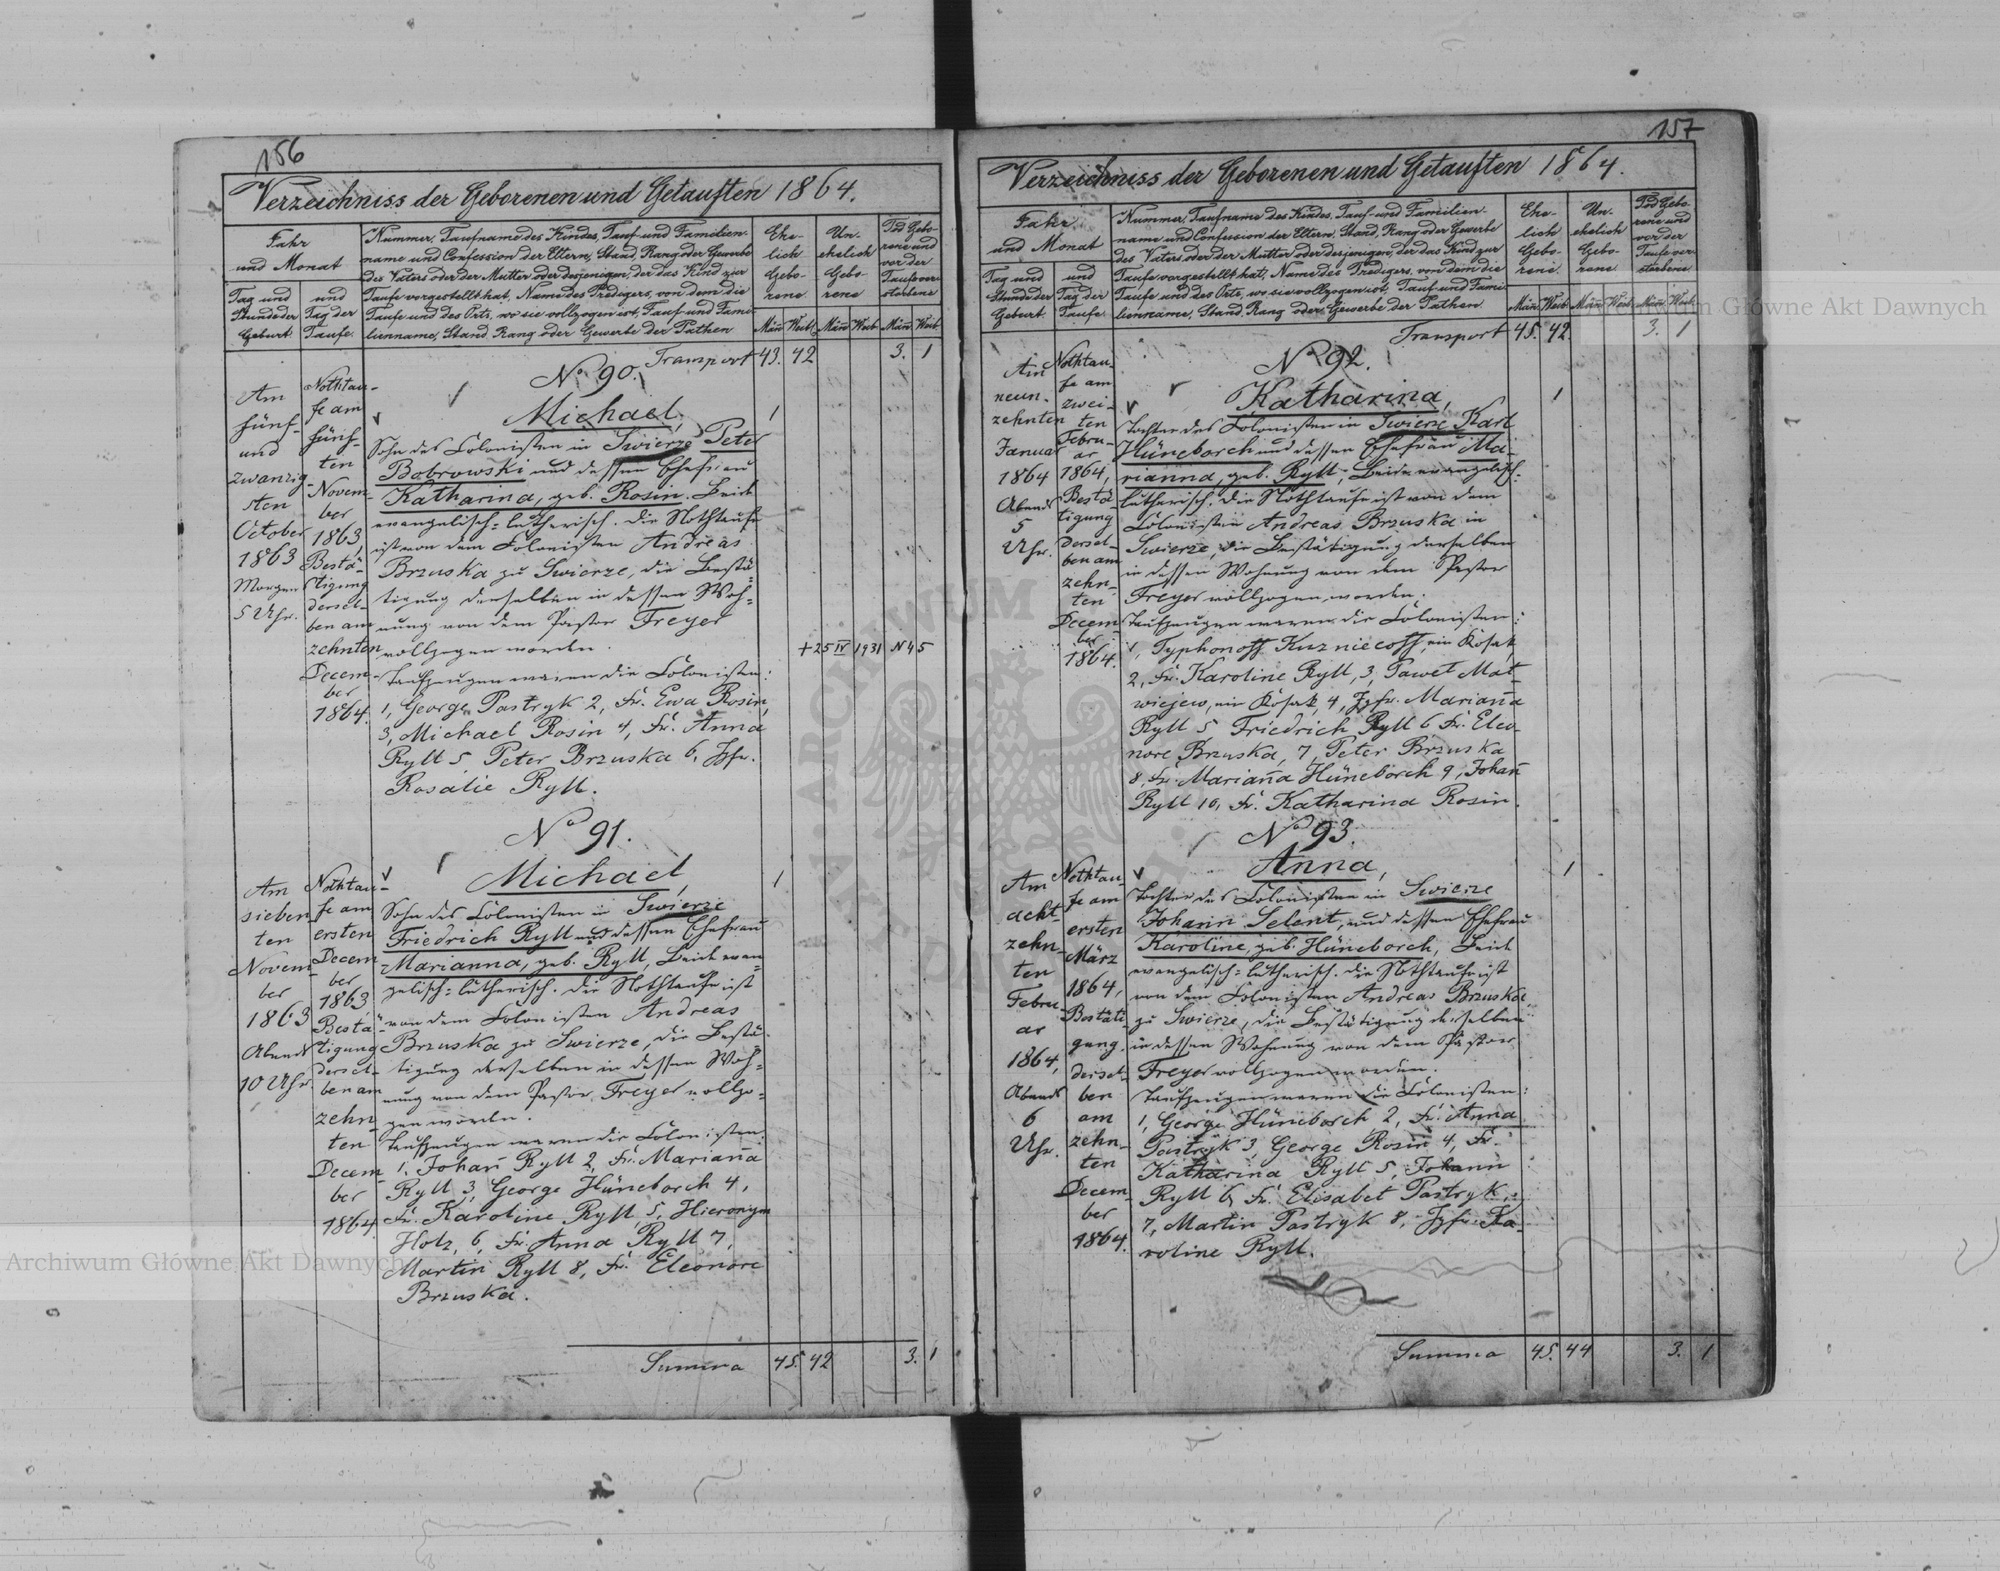 156
Verzeichniss der Geborenen und Getauften 1864.
Jahr
und Monat
Tag und
Stunde der
Geburt
und
Tag der
Taufe.
Nummer, Taufname des Kindes, Tauf- und Familien-
name und Confession der Eltern, Stand, Rang oder Gewerbe
des Vaters oder der Mutter oder desjenigen, der das Kind zur
Taufe vorgestellt hat, Name des Predigers, von dem die
Taufe und des Orts, wo sie vollzogen ist, Tauf- und Fami-
lienname, Stand, Rang oder Gewerbe der Pathen
Ehe-
lich
Gebo-
rene
Un-
ehelich
Gebo-
rene
Tod Gebo-
rene und
vor der
Taufe ver-
storbene
Män Weib. Män Weib Män Weib
Transport 43. 42 3. 1
Am
fünf-
und
zwanzig-
sten
October
1863
Morgen
5 Uhr.
Nothtau-
fe am
fünf-
ten
Novem-
ber
1863,
Bestä-
tigung
dersel-
ben am
zehnten
Decem-
ber
1864.
No 90.
Michael, 1
Sohn des Colonisten in Swierze Peter
Bobrowski und dessen Ehefrau
Katharina, geb. Rosin. Beide
evangelisch=lutherisch. Die Nothtaufe
ist von dem Colonisten Andreas
Brzuska zu Swierze, die Bestä=
tigung derselben in dessen Woh=
nung von dem Pastor Freyer
vollzogen worden.
+ 25 IV 1931 N45
Taufzeugen waren die Colonisten:
1, George Pastryk 2, Fr. Ewa Rosin,
3, Michael Rosin 4, Fr. Anna
Ryll 5, Peter Brzuska 6, Jgfr.
Rosalie Ryll.
Am
sieben
ten
Novem-
ber
1863
Abends
10 Uhr.
Nothtau-
fe am
ersten
Decem
ber
1863
Bestä-
tigung
dersel-
ben am
zehn-
ten
Decem-
ber
1864.
No 91.
Michael, 1
Sohn des Colonisten in Swierze
Friedrich Ryll und dessen Ehefrau
Marianna, geb. Ryll, Beide evan=
gelisch=lutherisch. Die Nothtaufe ist
von dem Colonisten Andreas
Brzuska zu Swierze, die Bestä=
tigung derselben in dessen Woh=
nung von dem Pastor Freyer vollzo=
gen worden.
Taufzeugen waren die Colonisten:
1, Johan̄ Ryll 2, Fr. Marian̄a
Ryll 3, George Hüneborch 4,
Fr. Karoline Ryll 5, Hieronym
Holz, 6, Fr. Anna Ryll 7,
Martin Ryll 8, Fr. Eleonore
Brzuska.
Summa 45. 42 3. 1
157
Verzeichniss der Geborenen und Getauften 1864.
Jahr
und Monat
Tag und
Stunde der
Geburt.
und
Tag der
Taufe
Nummer, Taufname des Kindes, Tauf- und Familien-
name und Confession der Eltern, Stand, Rang oder Gewerbe
des Vaters oder der Mutter oder desjenigen, der das Kind zur
Taufe vorgestellt hat, Name des Predigers, von dem die
Taufe und des Orts, wo sie vollzogen ist, Tauf- und Fami-
lienname, Stand, Rang oder Gewerbe der Pathen
Ehe-
lich
Gebo-
rene
Un-
ehelich
Gebo-
rene
Tod Gebo-
rene und
vor der
Taufe ver-
storbene
Män Weib. Män Weib Män Weib
Transport 45. 42. 3. 1
Am
neun-
zehnten
Januar
1864
Abends
5
Uhr.
Nothtau-
fe am
zwei-
ten
Febru-
ar
1864,
Bestä-
tigung
dersel-
ben am
zehn-
ten
Decem-
ber
1864.
No 92.
Katharina, 1
Tochter des Colonisten in Swierze Karl
Hüneborch und dessen Ehefrau Ma-
rianna, geb. Ryll, Beide evangelisch=
lutherisch. Die Nothtaufe ist von dem
Colonisten Andreas Brzuska in
Swierze, die Bestätigung derselben
in dessen Wohnung von dem Pastor
Freyer vollzogen worden.
Taufzeugen waren die Colonisten:
1, Typhonoff Kuzniecoff, ein Kosak,
2, Fr. Karoline Ryll, 3, Pawel Mat-
wiejew, ein Kosak, 4, Jgfr. Marian̄a
Ryll 5 Friedrich Ryll 6 Fr. Eleo-
nore Brzuska, 7, Peter Brzuska
8, Fr. Marian̄a Hüneborch 9, Johan̄
Ryll 10, Fr. Katharina Rosin.
Am
acht-
zehn-
ten
Febru-
ar
1864,
Abends
6
Uhr.
Nothtau-
fe am
ersten
März
1864,
Bestäti-
gung
dersel-
ben
am
zehn-
ten
Decem-
ber
1864.
No 93.
Anna, 1
Tochter des Colonisten in Swierze
Johann Selent, und dessen Ehefrau
Karoline, geb. Hüneborch, Beide
evangelisch=lutherisch. Die Nothtaufe ist
von dem Colonisten Andreas Brzuska
zu Swierze, die Bestätigung derselben
in dessen Wohnung von dem Pastor
Freyer vollzogen worden.
Taufzeugen waren die Colonisten:
1, George Hüneborch 2, Fr. Anna
Pastryk 3, George Rosin 4, Fr.
Katharina Ryll 5, Johann
Ryll 6, Fr. Elisabet Pastryk,
7, Martin Pastryk 8, Jgfr. Ka-
roline Ryll.
Summa 45. 44 3. 1
Archiwum Główne Akt Dawnych
Archiwum Główne Akt Dawnych